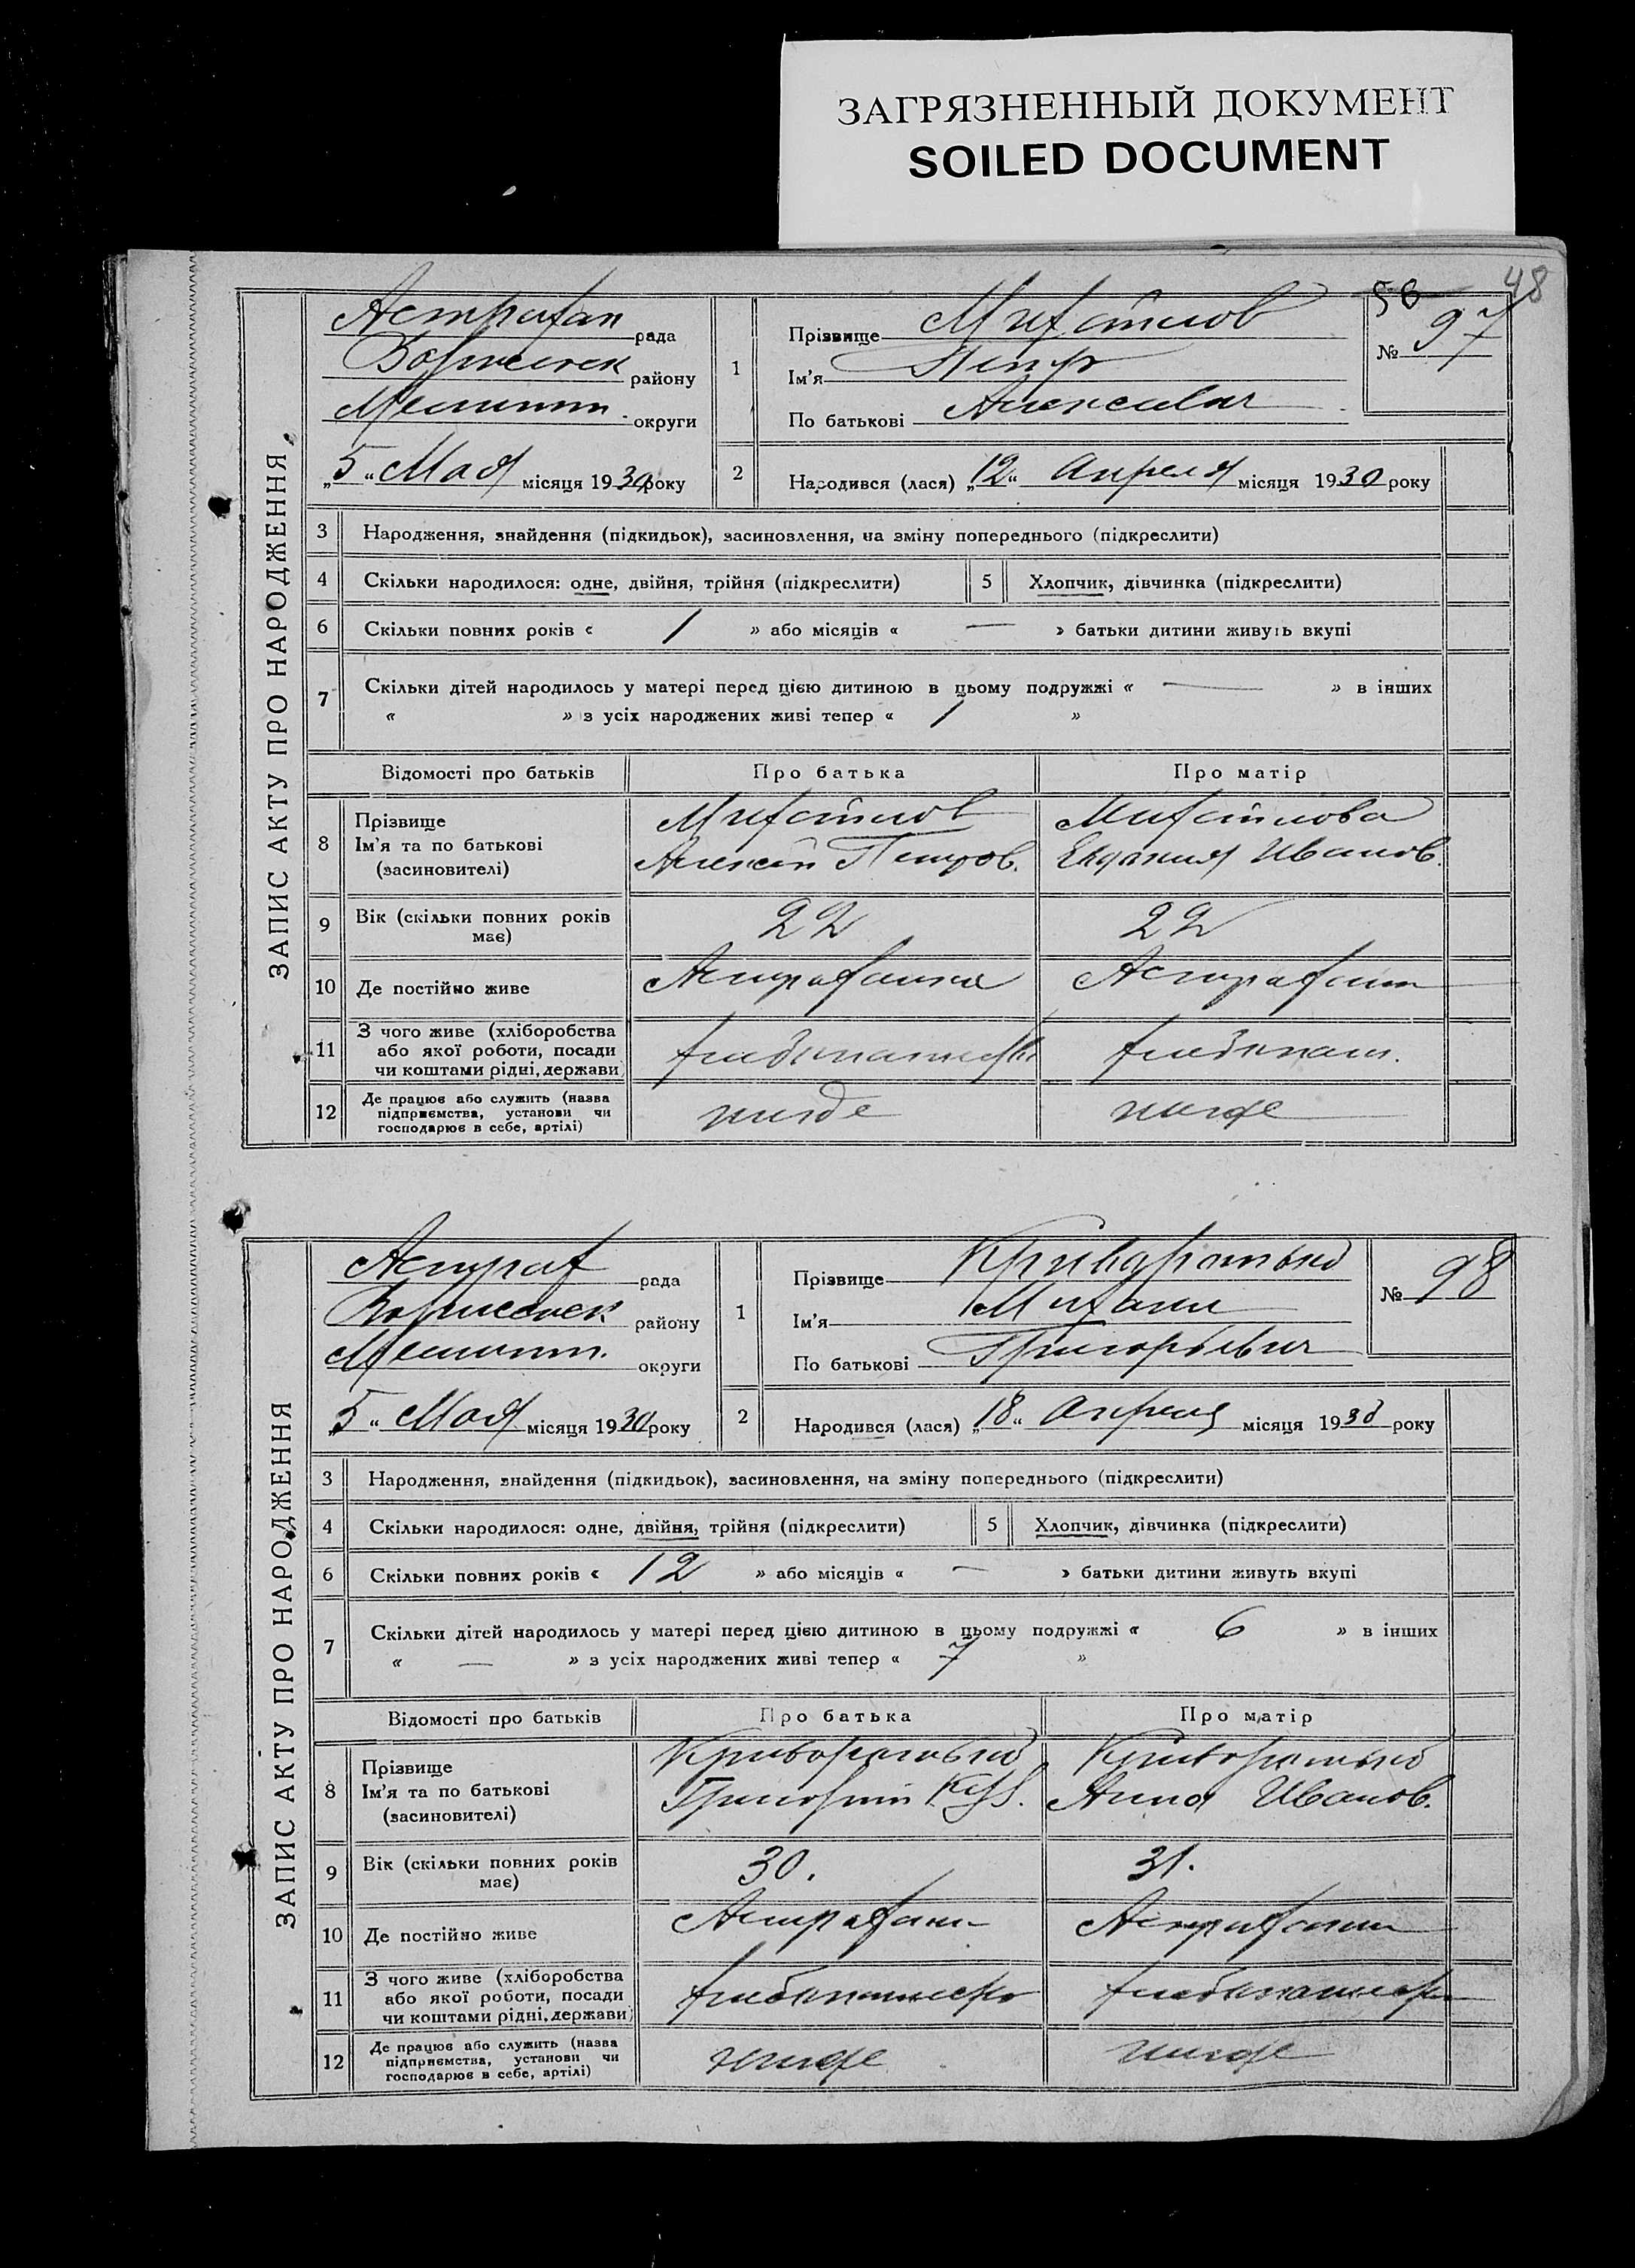 ЗАГРЯЗНЕННЫЙ ДОКУМЕНТ
SOILED DOCUMENT
48
58
ЗАПИС АКТУ ПРО НАРОДЖЕННЯ
Астрахан рада
району
округи
„5“ Мая місяця 1930 року
1
Прізвище Михайлов
Ім'я Петр
По батькові
№ 97
2
Народився (лася) „12“ Апреля місяця 1930 року
3 Народження, знайдення (підкидьок), засиновлення, на зміну попереднього (підкреслити)
4 Скільки народилося: одне, двійня, трійня (підкреслити) 5 Хлопчик, дівчинка (підкреслити)
6 Скільки повних років « 1 » або місяців « — » батьки дитини живуть вкупі
7 Скільки дітей народилось у матері перед цією дитиною в цьому подружжі « — » в інших
« » з усіх народжених живі тепер « 1 »
Відомості про батьків Про батька Про матір
8 Прізвище Михайлов Михайлова
Ім'я та по батькові Алексей Петров. Евдокия Иванов.
(засиновителі)
9 Вік (скільки повних років має) 22 22
10 Де постійно живе Астраханка Астрахан
11 З чого живе (хліборобства
або якої роботи, посади хлебопашеств хлебопаш.
чи коштами рідні, держави)
12 Де працює або служить (назва
підприємства, установи чи нигде нигде
господарює в себе, артілі)
ЗАПИС АКТУ ПРО НАРОДЖЕННЯ
Астрах рада
району
округи
„5“ Мая місяця 1930 року
1
Прізвище
Ім'я Михаил
По батькові Григорьевич
№ 98
2
Народився (лася) „18“ Апреля місяця 1930 року
3 Народження, знайдення (підкидьок), засиновлення, на зміну попереднього (підкреслити)
4 Скільки народилося: одне, двійня, трійня (підкреслити) 5 Хлопчик, дівчинка (підкреслити)
6 Скільки повних років « 12 » або місяців « — » батьки дитини живуть вкупі
7 Скільки дітей народилось у матері перед цією дитиною в цьому подружжі « 6 » в інших
« — » з усіх народжених живі тепер « 7 »
Відомості про батьків Про батька Про матір
8 Прізвище
Ім'я та по батькові Григорий Анна Иванов.
(засиновителі)
9 Вік (скільки повних років має) 30. 31.
10 Де постійно живе Астрахан Астрахан
11 З чого живе (хліборобства
або якої роботи, посади хлебопашество хлебопашеств
чи коштами рідні, держави)
12 Де працює або служить (назва
підприємства, установи чи нигде нигде
господарює в себе, артілі)